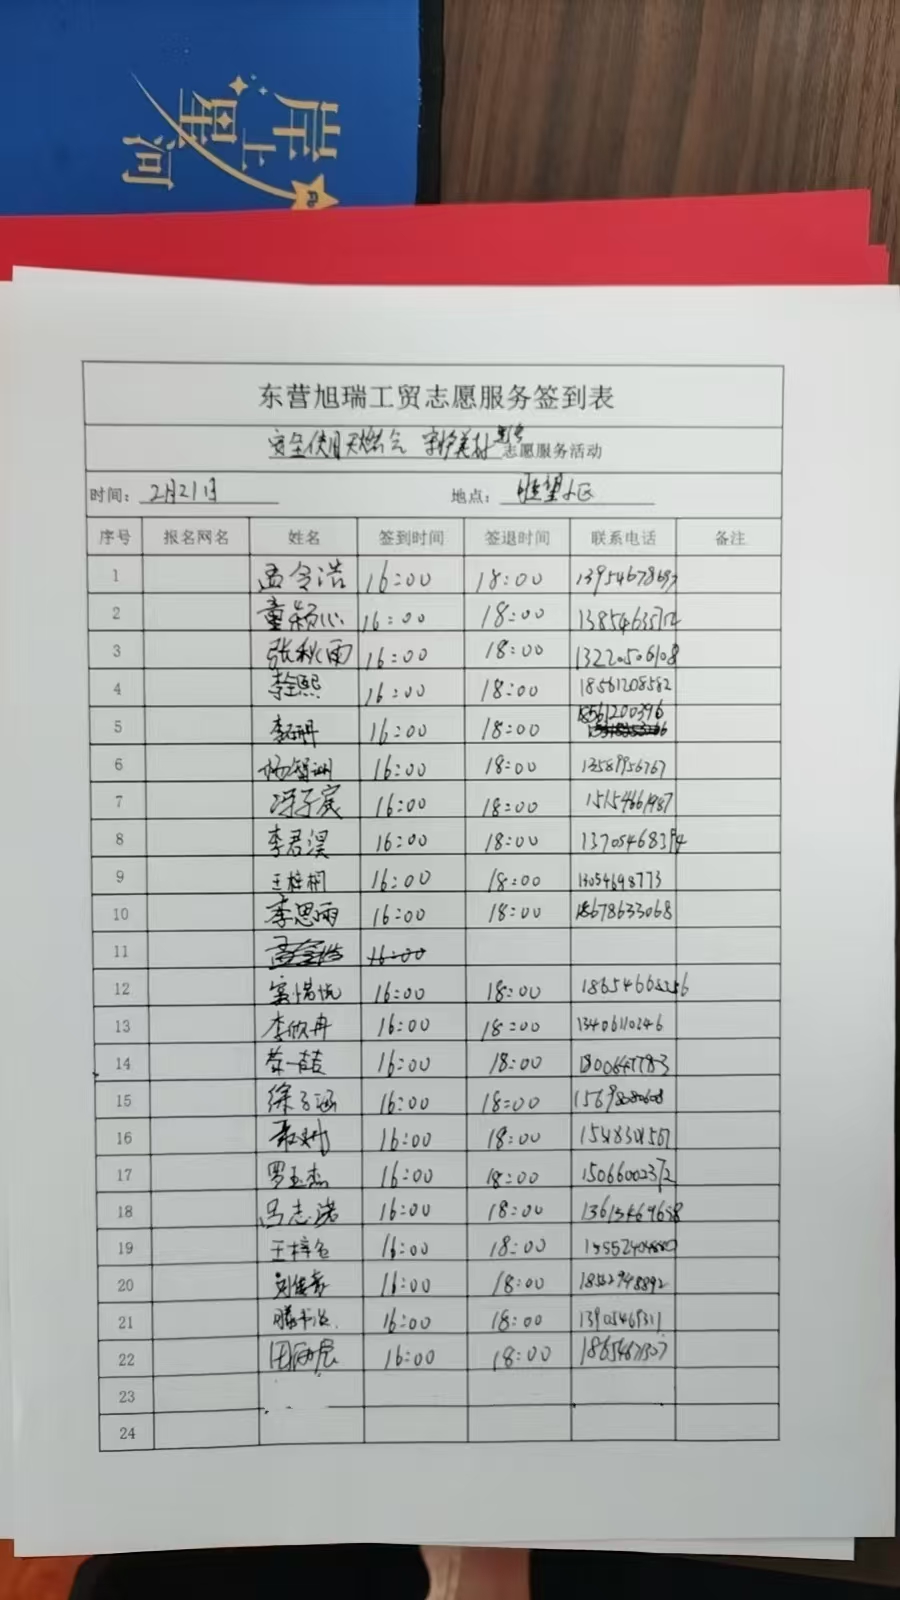 岸上星河
东营旭瑞工贸志愿服务签到表
安全使用天燃气 志愿服务活动
时间： 2月21日 地点： 瞳望小区
序号 报名网名 姓名 签到时间 签退时间 联系电话 备注
1 孟令浩 16:00 18:00
2 董颖心 16:00 18:00
3 张秋雨 16:00 18:00 13220506108
4 李全熙 16:00 18:00 18561208582
5 16:00 18:00 18561200396
6 杨智渊 16:00 18:00 13589956767
7 冯子宸 16:00 18:00 15154661987
8 李君淏 16:00 18:00
9 王梓桐 16:00 18:00 13054698773
10 李思雨 16:00 18:00 18678633068
11 16:00
12 16:00 18:00
13 李欣冉 16:00 18:00 13406110246
14 16:00 18:00
15 徐子涵 16:00 18:00
16 16:00 18:00
17 罗玉杰 16:00 18:00 15066002372
18 吕志诺 16:00 18:00
19 16:00 18:00
20 16:00 18:00
21 16:00 18:00 13905469311
22 16:00 18:00
23
24